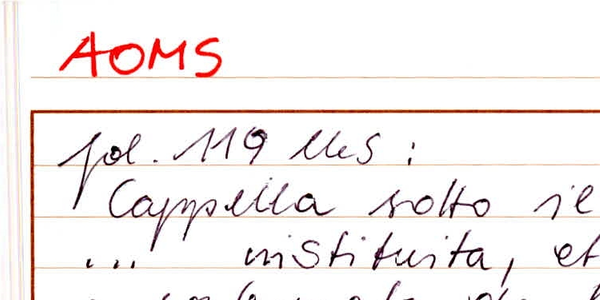 AOMS
fol. 119 Mes :
Cappella sotto il
... instituita, et